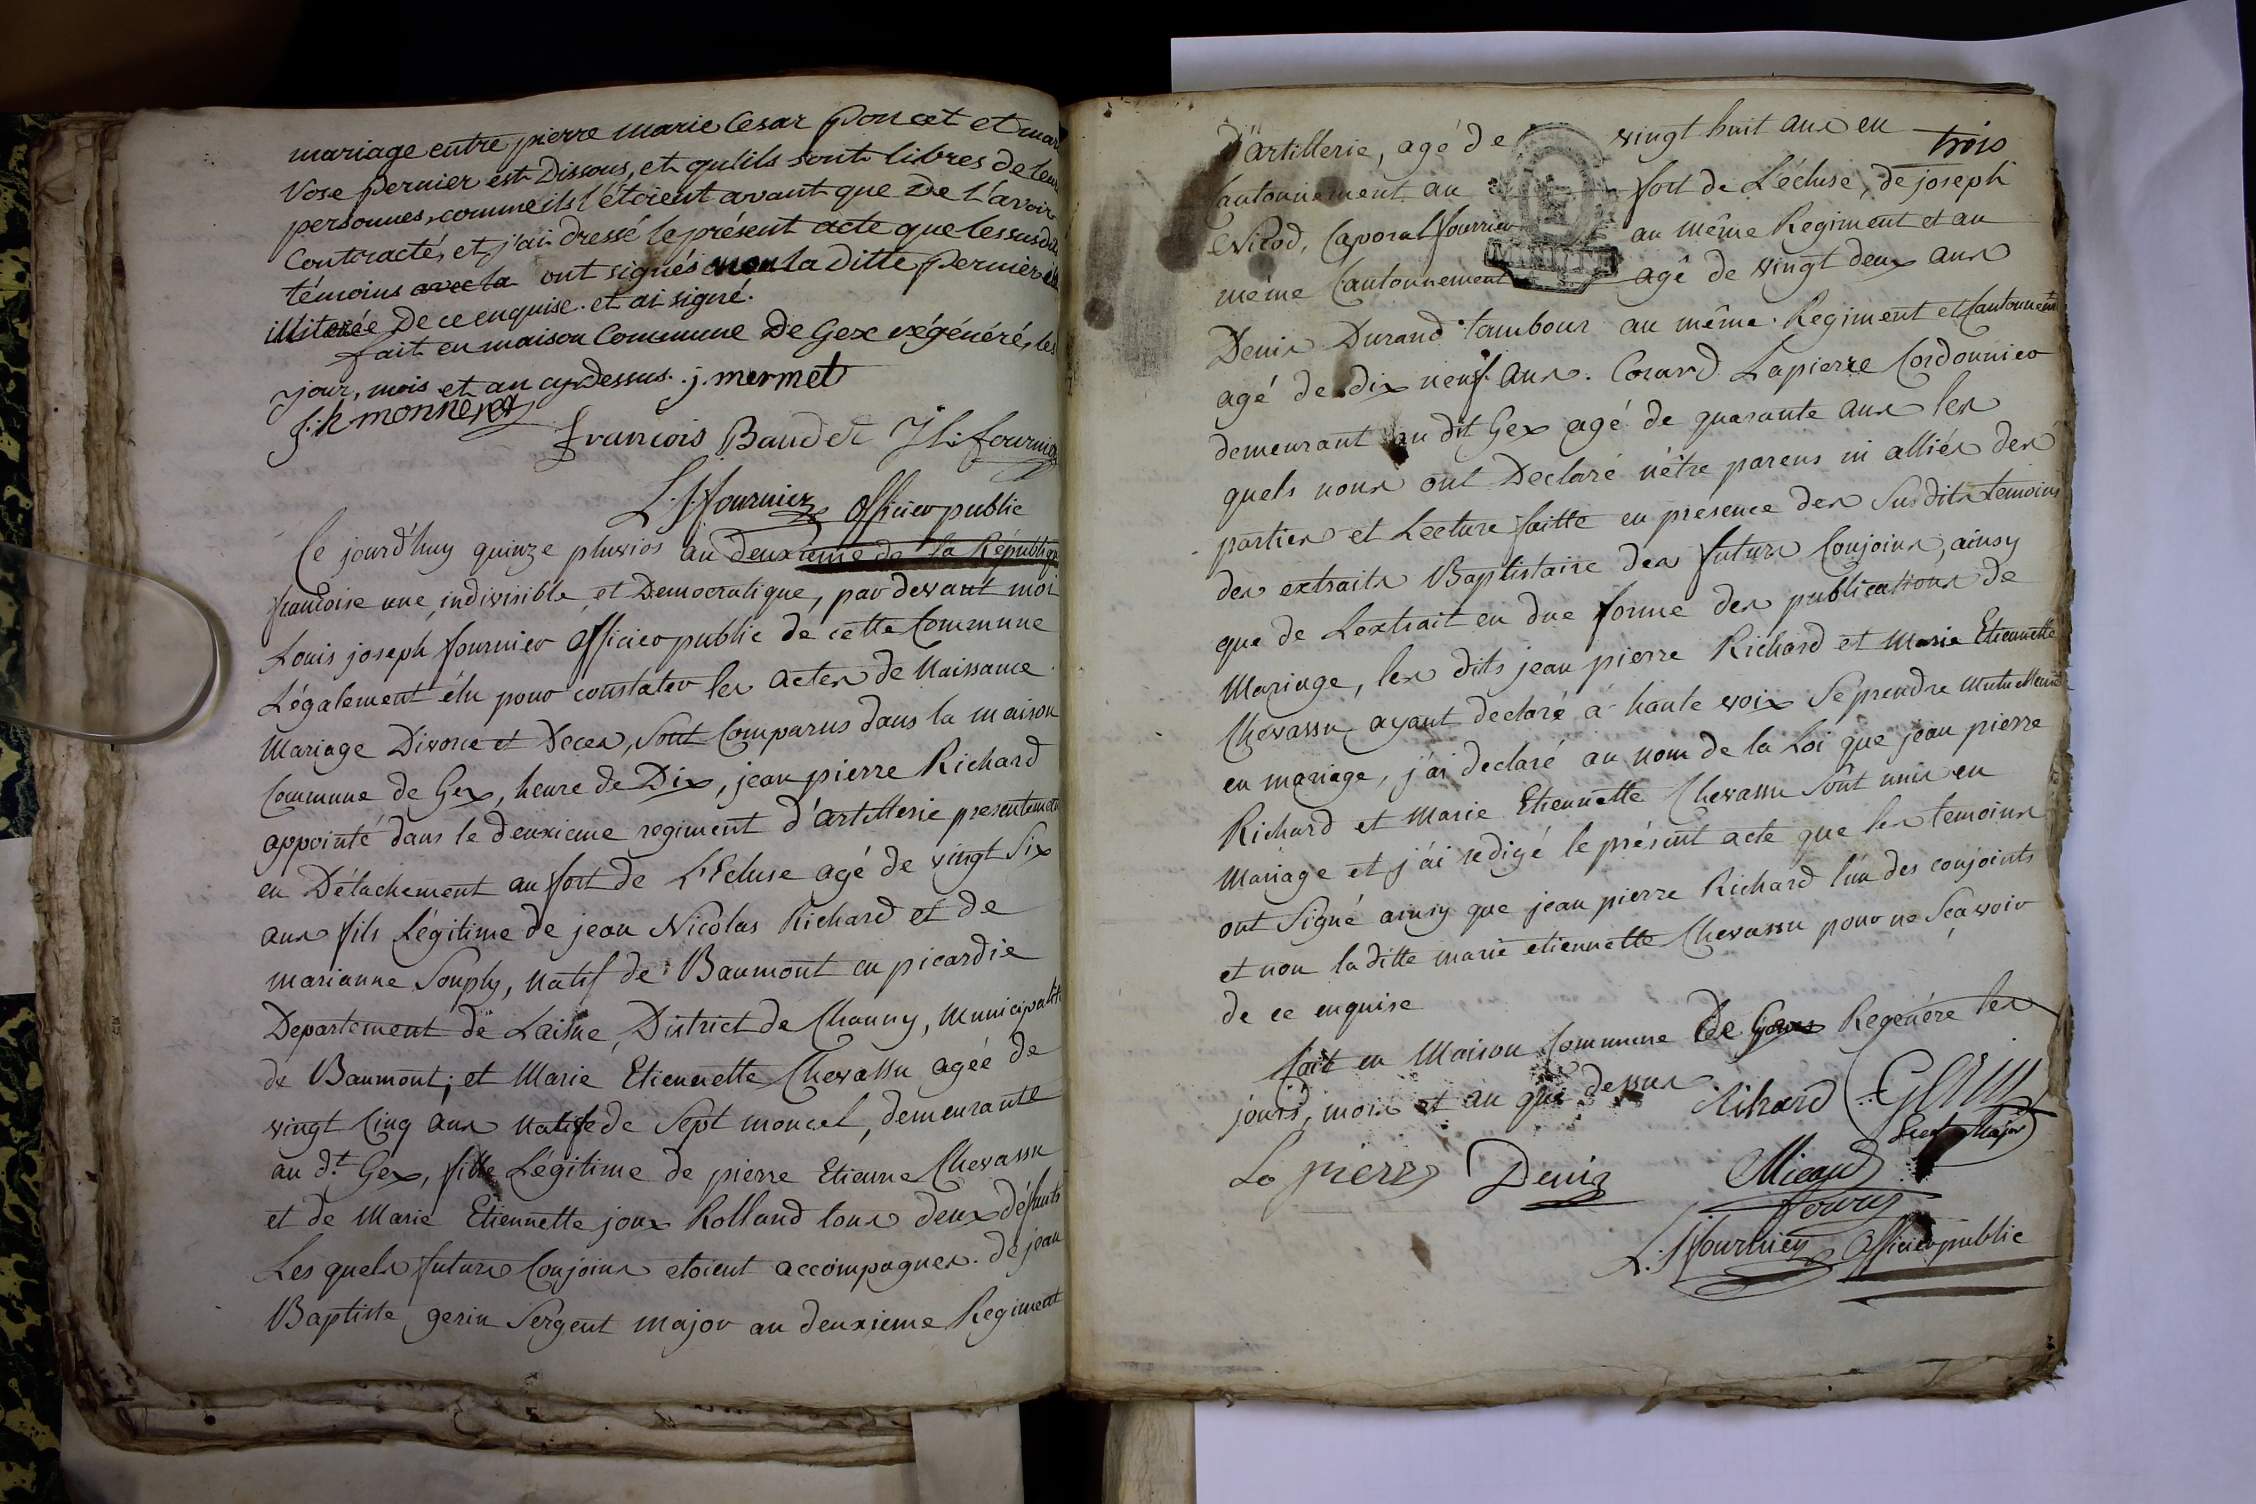 mariage entre pierre marie Cesar Poncet et mar
Vose Pernier est Dissous, et qu'ils sont libres de leurs
personnes, comme ils l'étoient avant que de l'avoir
Contracté, et j'ai dressé le présent acte que les susdits
témoins avec la ont signés non la ditte Pernier
illiterée de ce enquise. et ai signé.
fait en maison Commune de Gex régénéré, les
jour, mois et an cy dessus. j. mermet
françois Baudet fournier
L. J. fournier officier public
Ce jourd'huy quinze pluvios an deuxieme de la République
françoise une, indivisible et Democratique, par devant moi
Louis joseph fournier officier public de cette Commune
Légalement élu pour constater les actes de Naissance
Mariage Divorce et Deces, sont Comparus dans la maison
Commune de Gex, heure de Dix, jean pierre Richard
appointé dans le deuxieme regiment d'artillerie presentement
en Détachement au fort de L'Ecluse agé de vingt Six
ans fils Légitime de jean Nicolas Richard et de
marianne Souply, natif de Baumont en picardie
Departement de Laisne, District de Chauny, Municipalité
de Baumont; et Marie Etiennette Chevassu agée de
vingt Cinq ans native de Sept moncel, demeurante
au dt. Gex, fille Légitime de pierre Etienne Chevassu
et de Marie Etiennette joux Rolland tous deux défunts
Les quels futurs Conjoins etoient accompagnes. de jean
Baptiste gerin Sergent major au deuxieme Regiment
trois
d'artillerie, agé de vingt huit ans en
Cantonnement au fort de L'écluse, de joseph
Nicod, Caporal fourrier au même Regiment et au
même Cantonnement agé de vingt deux ans
Denis Durand tambour au même Regiment et Cantonnement
agé de dix neuf ans. Lapierre Cordonnier
demeurant au dit Gex agé de quarante ans les
quels nous ont Declaré n'étre parens ni alliés des
parties et Lecture faitte en présence des Susdits temoins
des extraits Baptistaire des futurs Conjoins, ainsy
que de L'extrait en due forme des publications de
Mariage, les dits jean pierre Richard et Marie Etiennette
Chevassu ayant declaré à haute voix Se prendre mutuellement
en mariage, j'ai declaré au nom de la Loi que jean pierre
Richard et Marie Etiennette Chevassu Sont unis en
Mariage et j'ai redigé le présent acte que les temoins
ont Signé ainsy que jean pierre Richard l'un des conjoints
et non la ditte marie etiennette Chevassu pour ne Sçavoir
de ce enquise
fait en Maison Commune de Gex Regénéré les
jours, mois et an que dessus Richard Gerin
Sergt. Major
La pierre Denis Nicaud
fourier
L. J. fournier officier public